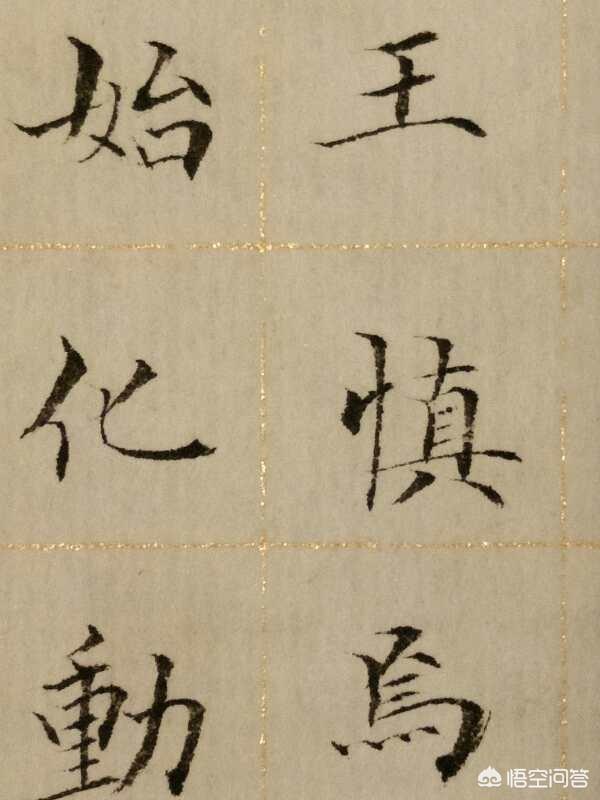 王慎焉
始化動
悟空问答